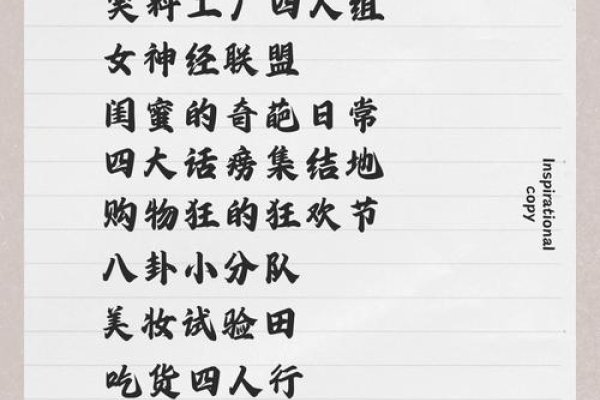 笑料工厂四人组
女神经联盟
闺蜜的奇葩日常
四大话痨集结地
购物狂的狂欢节
八卦小分队
美妆试验田
吃货四人行
Inspirational
copy